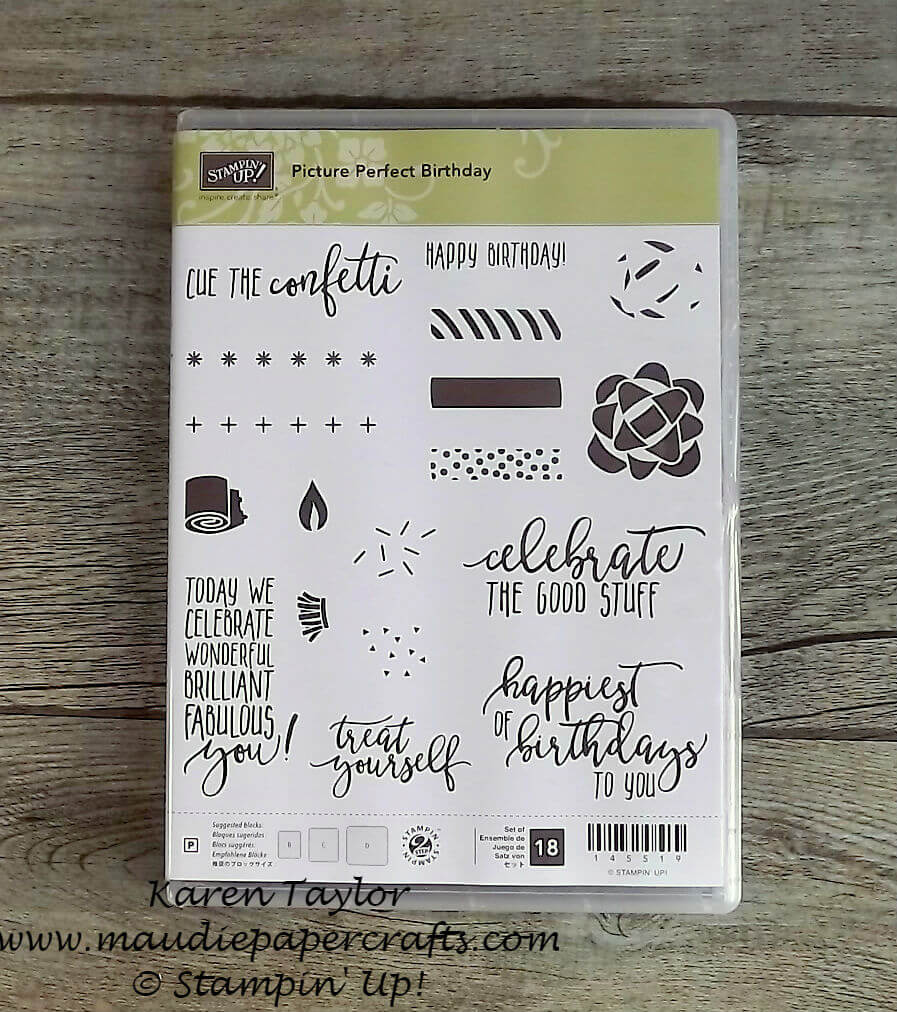 STAMPIN' UP!
inspire. create. share.®
Picture Perfect Birthday
CUE THE confetti
HAPPY BIRTHDAY!
celebrate
THE GOOD STUFF
TODAY WE
CELEBRATE
WONDERFUL
BRILLIANT
FABULOUS
you!
treat
yourself
happiest
OF birthdays
TO YOU
P
Suggested blocks:
Bloques sugeridos
Blocs suggérés:
Empfohlene Blöcke
推奨のブロックサイズ
B
C
D
STAMPIN' 2 STEP STAMPIN'
Set of
Ensemble de
Juego de
Satz von
セット
18
145519
© STAMPIN' UP!
Karen Taylor
www.maudiepapercrafts.com
© Stampin' Up!